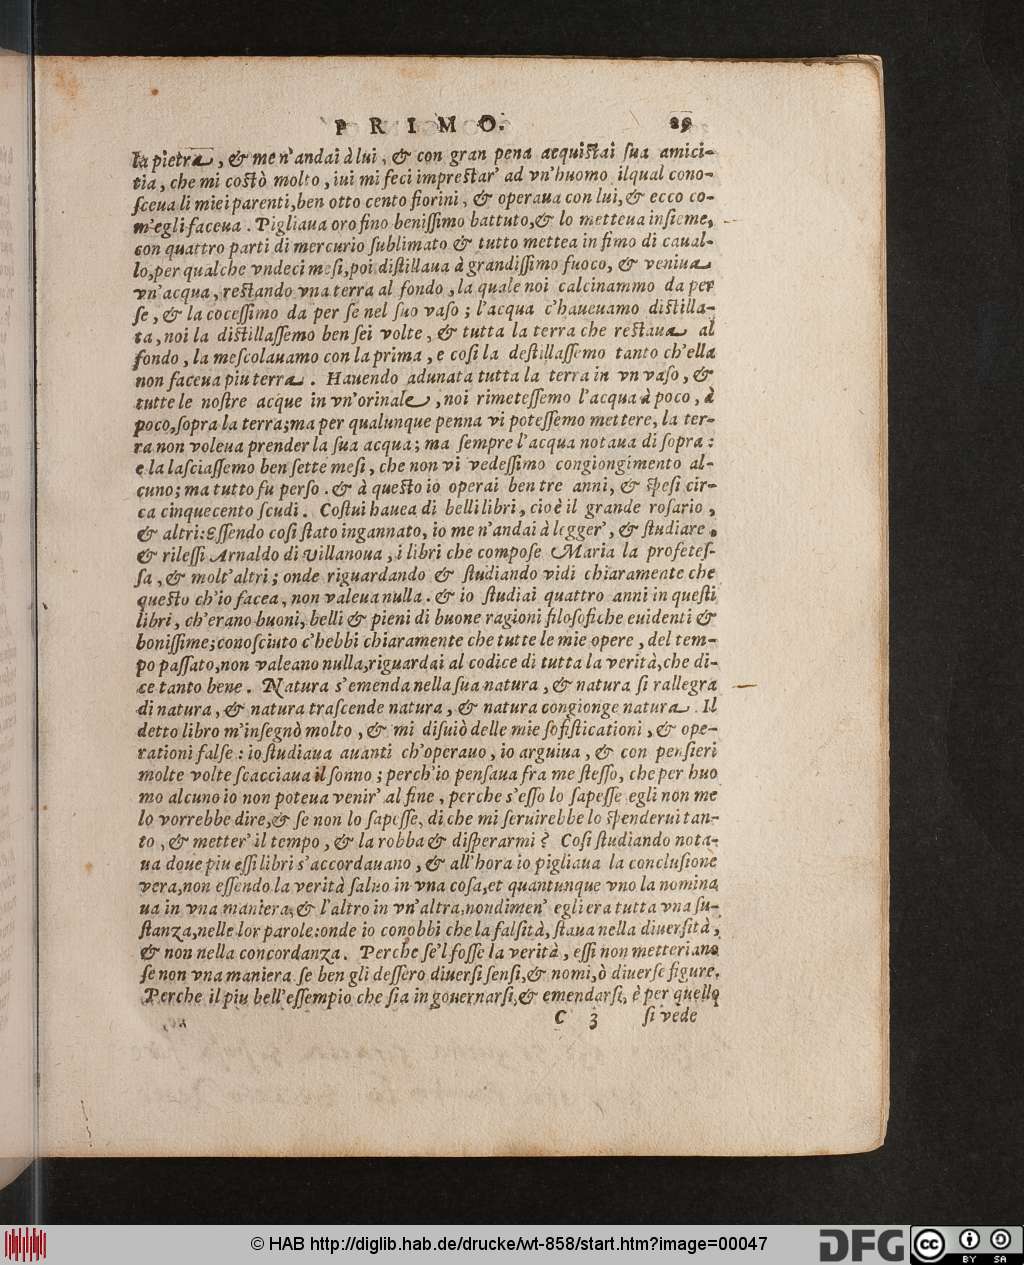 P R I M O. 29
la pietra, & me n'andai à lui, & con gran pena acquistai sua amici-
tia, che mi costò molto, iui mi feci imprestar' ad vn'huomo ilqual cono-
sceua li miei parenti, ben otto cento fiorini, & operaua con lui, & ecco co-
m'egli faceua. Pigliaua oro fino benissimo battuto, & lo metteua insieme,
con quattro parti di mercurio sublimato & tutto mettea in fimo di caual-
lo, per qualche vndeci mesi, poi distillaua à grandissimo fuoco, & veniua
vn'acqua, restando vna terra al fondo, la quale noi calcinammo da per
se, & la cocessimo da per se nel suo vaso; l'acqua c'haueuamo distilla-
ta, noi la distillassemo ben sei volte, & tutta la terra che restaua al
fondo, la mescolauamo con la prima, e cosi la destillassemo tanto ch'ella
non faceua piu terra. Hauendo adunata tutta la terra in vn vaso, &
tutte le nostre acque in vn'orinale, noi rimetessemo l'acqua à poco, à
poco, sopra la terra; ma per qualunque penna vi potessemo mettere, la ter-
ra non voleua prender la sua acqua; ma sempre l'acqua notaua di sopra:
e la lasciassemo ben sette mesi, che non vi vedessimo congiongimento al-
cuno; ma tutto fu perso. & à questo io operai ben tre anni, & spesi cir-
ca cinquecento scudi. Costui hauea di belli libri, cioè il grande rosario,
& altri: Essendo cosi stato ingannato, io me n'andai à legger', & studiare,
& rilessi Arnaldo di Villanoua, i libri che compose Maria la profetes-
sa, & molt'altri; onde riguardando & studiando vidi chiaramente che
questo ch'io facea, non valeua nulla. & io studiai quattro anni in questi
libri, ch'erano buoni, belli & pieni di buone ragioni filosofiche euidenti &
bonissime; conosciuto c'hebbi chiaramente che tutte le mie opere, del tem-
po passato, non valeano nulla, riguardai al codice di tutta la verità, che di-
ce tanto bene. Natura s'emenda nella sua natura, & natura si rallegra
di natura, & natura trascende natura, & natura congionge natura. Il
detto libro m'insegnò molto, & mi disuiò delle mie sofisticationi, & ope-
rationi false: io studiaua auanti ch'operauo, io arguiua, & con pensieri
molte volte scacciaua il sonno; perch'io pensaua fra me stesso, che per huo
mo alcuno io non poteua venir' al fine, perche s'esso lo sapesse egli non me
lo vorrebbe dire, & se non lo sapesse, di che mi seruirebbe lo spenderui tan-
to, & metter' il tempo, & la robba & disperarmi? Cosi studiando nota-
ua doue piu essi libri s'accordauano, & all'hora io pigliaua la conclusione
vera, non essendo la verità saluo in vna cosa, et quantunque vno la nomina
ua in vna maniera, & l'altro in vn'altra, nondimen' egli era tutta vna su-
stanza, nelle lor parole: onde io conobbi che la falsità, staua nella diuersità,
& non nella concordanza. Perche se'l fosse la verità, essi non metteriano
se non vna maniera se ben gli dessero diuersi sensi, & nomi, ò diuerse figure.
Perche il piu bell'essempio che sia in gouernarsi, & emendarsi, è per quello
C 3 si vede
© HAB http://diglib.hab.de/drucke/wt-858/start.htm?image=00047
DFG
cc BY SA